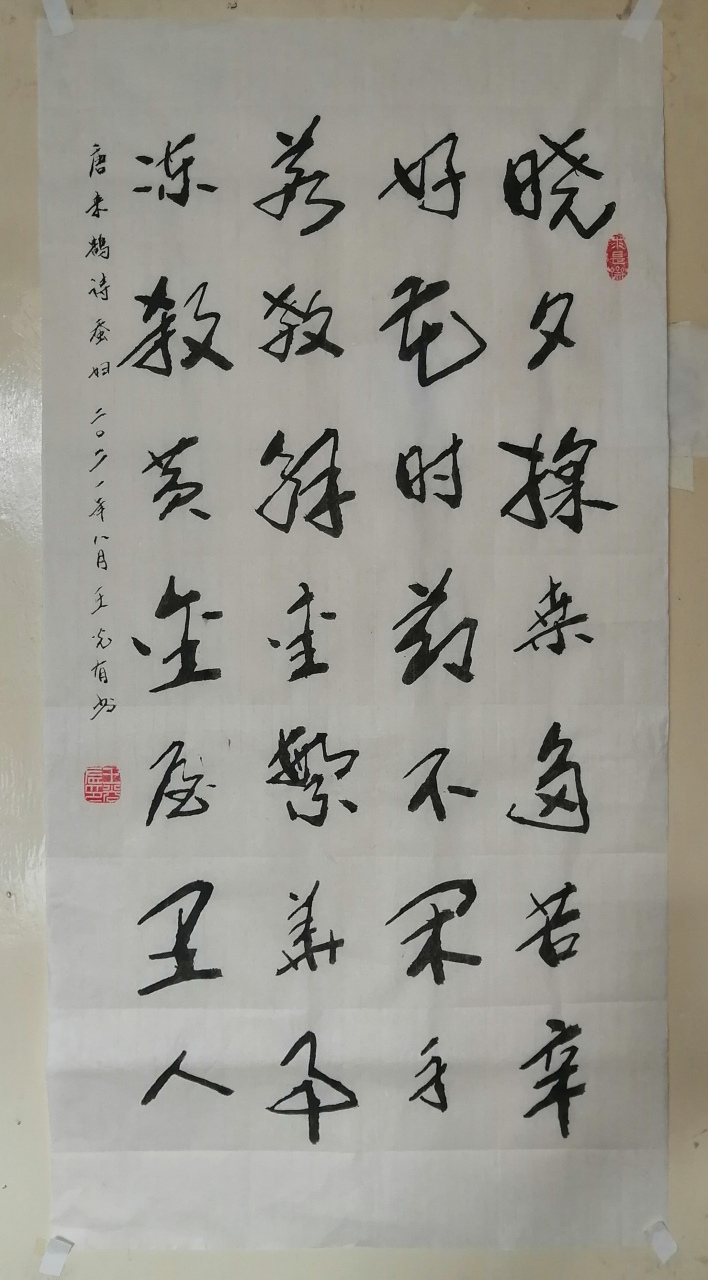 晓夕採桑多苦辛
好花时节不闲身
若教解爱繁華事
冻殺黄金屋里人
唐来鹄诗蚕妇 二〇二一年八月 王光有书